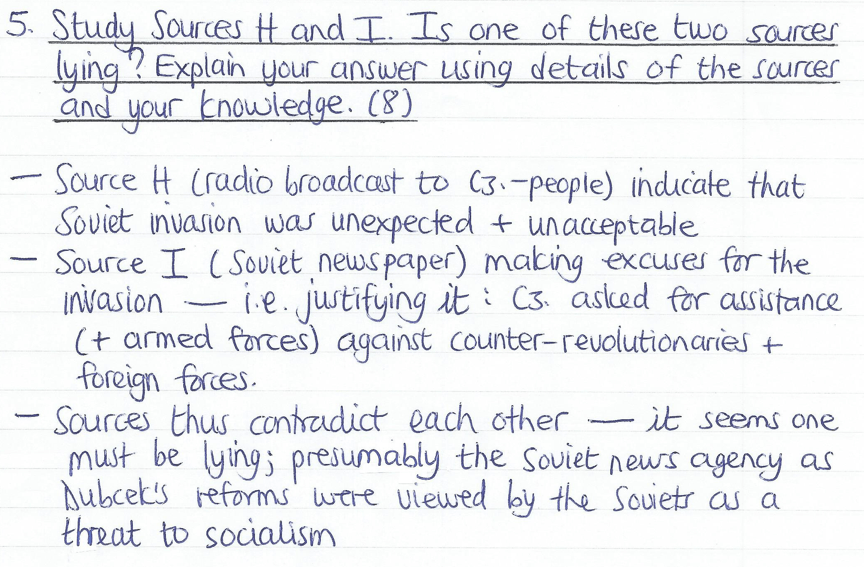 5. Study Sources H and I. Is one of these two sources
lying? Explain your answer using details of the sources
and your knowledge. (8)
— Source H (radio broadcast to C3.-people) indicate that
Soviet invasion was unexpected + unacceptable
— Source I (Soviet newspaper) making excuses for the
invasion — i.e. justifying it : C3. asked for assistance
(+ armed forces) against counter-revolutionaries +
foreign forces.
— Sources thus contradict each other — it seems one
must be lying; presumably the Soviet news agency as
Dubcek's reforms were viewed by the Soviets as a
threat to socialism